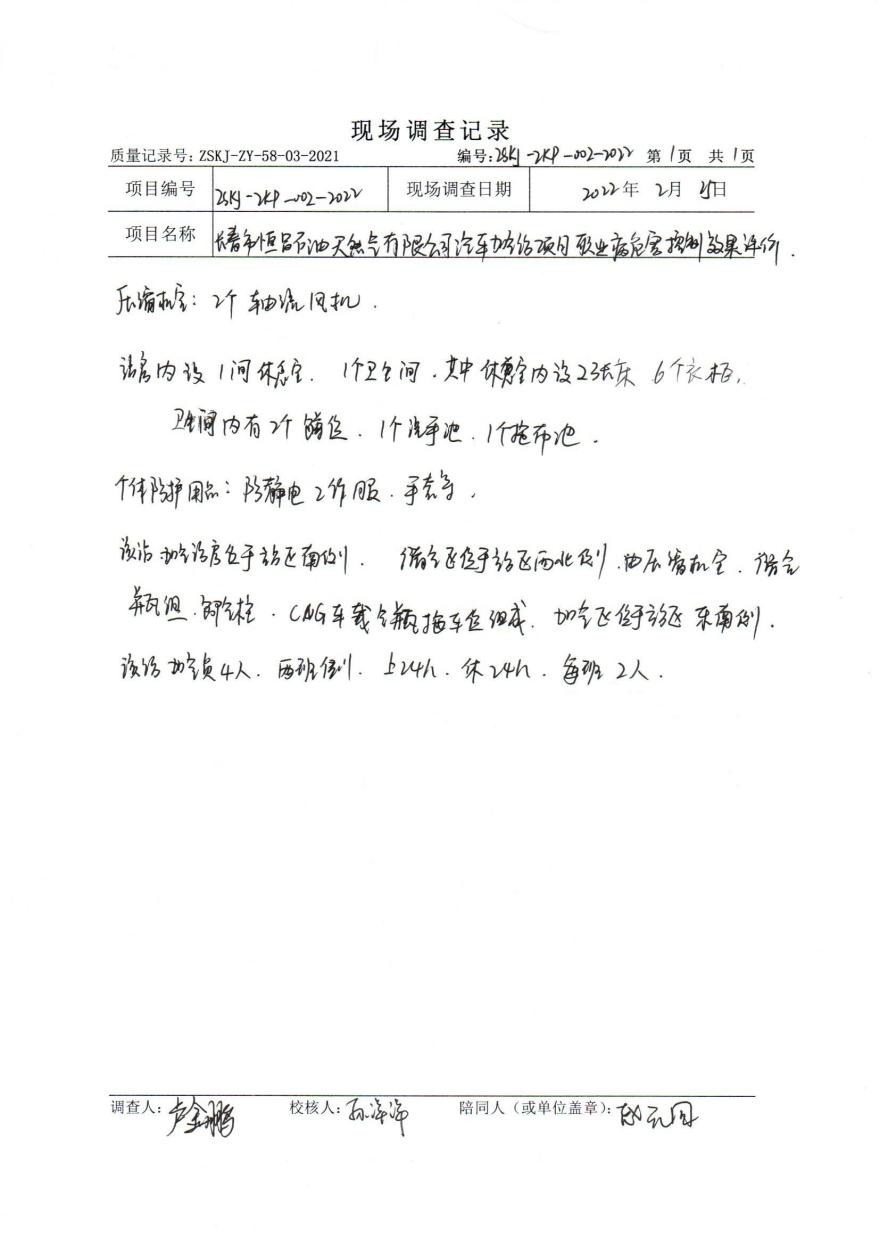 现场调查记录
质量记录号: ZSKJ-ZY-58-03-2021 编号: ZSKJ-ZKP-002-2022 第1页 共1页
项目编号 ZSKJ-ZKP-002-2022 现场调查日期 2022年 2月 日
项目名称 长春市恒昌石油天然气有限公司汽车加气站项目职业病危害控制效果评价.
压缩机室: 2个轴流风机.
站房内设1间休息室. 1个卫生间. 其中休息室内设23张床 6个衣柜,
卫生间内有2个蹲位. 1个洗手池. 1个拖布池.
个体防护用品: 防静电工作服. 手套等,
该站加气站房位于站区南侧. 储气区位于站区西北侧, 由压缩机室. 储气
瓶组. 卸气柱. CNG车载气瓶拖车位组成. 加气区位于站区东南侧.
该站加气员4人. 两班倒. 上24h. 休24h. 每班2人.
调查人: 卢金鹏 校核人: 孙洋洋 陪同人（或单位盖章):